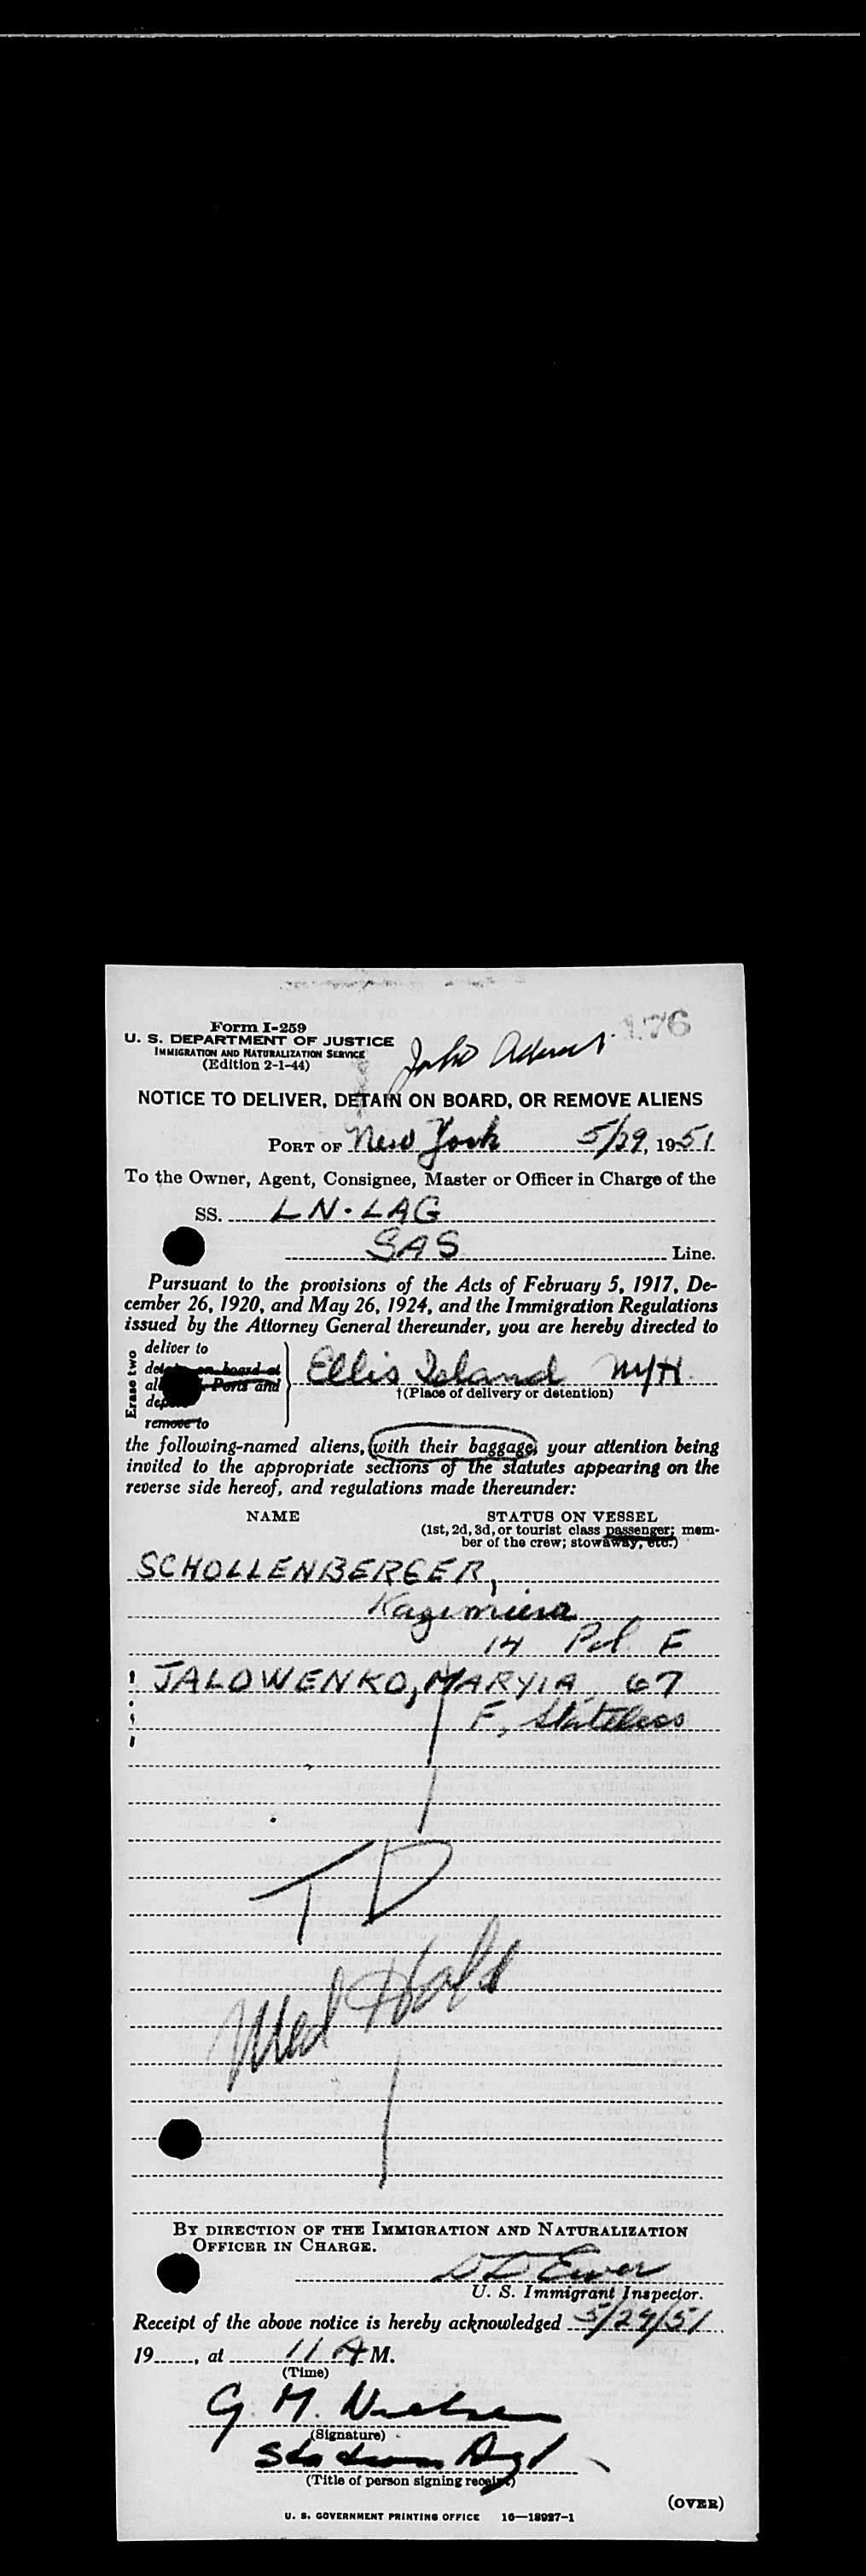 Form I-259
176
U. S. DEPARTMENT OF JUSTICE
IMMIGRATION AND NATURALIZATION SERVICE
(Edition 2-1-44)
NOTICE TO DELIVER, DETAIN ON BOARD, OR REMOVE ALIENS
PORT OF New York 5/29, 1951
To the Owner, Agent, Consignee, Master or Officer in Charge of the
SS. LN-LAG
SAS Line.
Pursuant to the provisions of the Acts of February 5, 1917, De-
cember 26, 1920, and May 26, 1924, and the Immigration Regulations
issued by the Attorney General thereunder, you are hereby directed to
Erase two
deliver to
detain on board at
Ports and
remove to
Ellis Island NYH
†(Place of delivery or detention)
the following-named aliens, with their baggage, your attention being
invited to the appropriate sections of the statutes appearing on the
reverse side hereof, and regulations made thereunder:
NAME STATUS ON VESSEL
(1st, 2d, 3d, or tourist class passenger; mem-
ber of the crew; stowaway, etc.)
SCHOLLENBERGER,
Kazimiera
14 Pol F
JALOWENKO, MARYIA 67
F, Stateless
TD
Med Hold
BY DIRECTION OF THE IMMIGRATION AND NATURALIZATION
OFFICER IN CHARGE.
D D Ewer
U. S. Immigrant Inspector.
Receipt of the above notice is hereby acknowledged 5/29/51
19......, at 11 A M.
(Time)
G. M. Nielsen
(Signature)
Station Agt
(Title of person signing receipt)
(OVER)
U. S. GOVERNMENT PRINTING OFFICE 16—18927-1